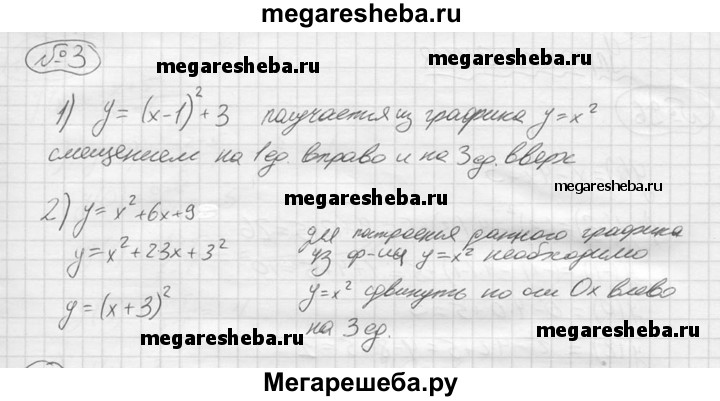 megaresheba.ru
№3
megaresheba.ru
megaresheba.ru
1) y = (x-1)² + 3 получается из графика y = x²
смещением на 1 ед. вправо и на 3 ед. вверх
megaresheba.ru
megaresheba.ru
2) y = x² + 6x + 9
y = x² + 23x + 3²
y = (x + 3)²
для построения данного графика
из ф-ии y = x² необходимо
y = x² сдвинуть по оси Ox влево
на 3 ед.
megaresheba.ru
megaresheba.ru
Мегарешеба.ру